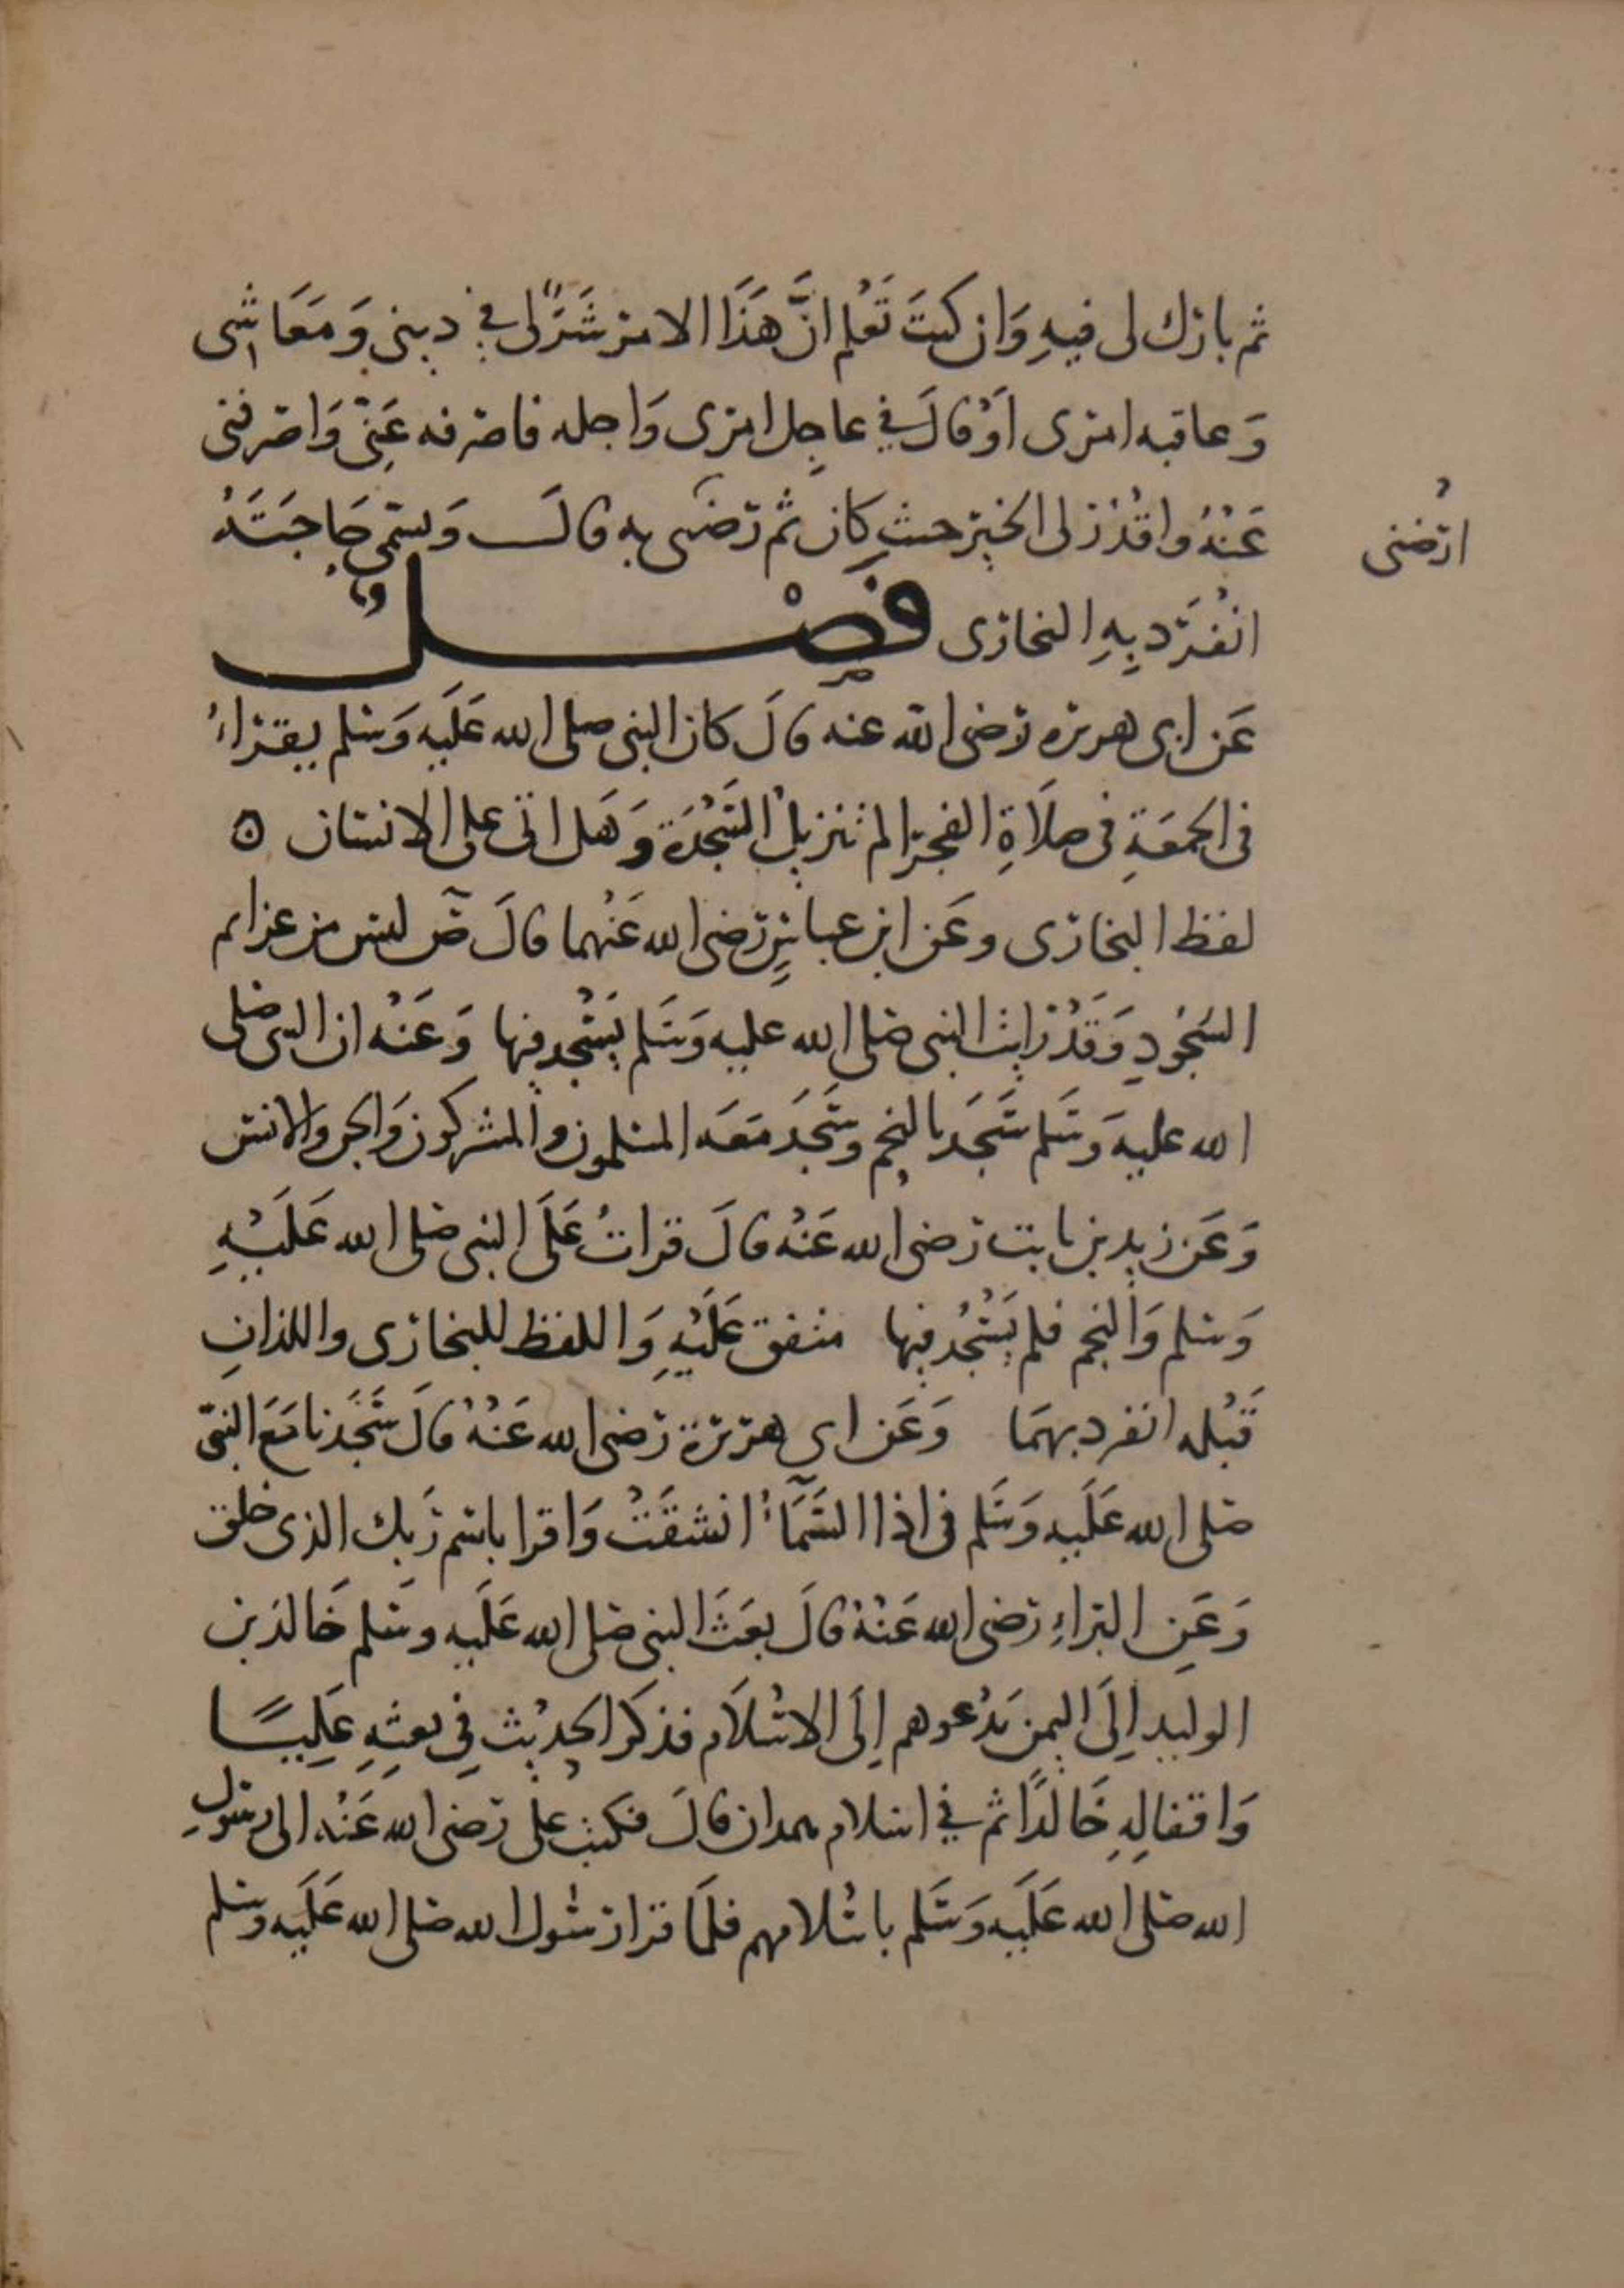 ثم بارك لى فيهِ وَان كنتَ تَعْلم انَّ هَذَا الامر شَرٌّ لى في دينى وَمَعَاشى
وَعاقبه امرى اَوْ قالَ في عاجِل امرى وَاجله فاصرفه عَنِّى وَاصرفنى
عَنْهُ واقْدُرْ لى الخير حيث كان ثم رَضّنى به قالَ وَيسَمى حَاجَتَهُ
ارْضنى
انْفَرَد بِهِ البخارى فَصْلٌ
عَن ابى هريره رضى الله عنه قالَ كان النبى صلى الله عَلَيه وَسَلم يقراءُ
فى الجمعَةِ فى صلَاةِ الفجر الم تنزيلُ السَّجْدَة وَهَل اتى على الانسان ه
لفظ البخارى وعَن ابن عباسٍ رَضى الله عَنْهما قالَ صۤ ليس من عزايم
السّجُودِ وَقَدْ رَايت النبى صَلى الله عليه وَسَلم يَسْجُد فيها وَعَنْه ان النبى صَلى
الله عليه وَسَلم سَجَدَ بالنجم وسَجَدَ مَعَه المسلمون والمشركون وَالجن والانس
وَعَن زيد بن ثابت رَضى الله عَنْه قالَ قراتُ عَلَى النبى صَلى الله عَلَيْهِ
وَسلم وَالنجم فلم يَسْجُدْ فيها متفق عَلَيْهِ وَاللفظ للبخارى واللذانِ
قَبْله انفرد بهمَا وَعَن ابى هرَيْرَة رَضى الله عَنْهُ قالَ سَجَدْنا مَعَ النبىّ
صَلى الله عَلَيه وَسَلم فى اذا السَّمَآءُ انشقَتْ وَاقرا باسْم رَبك الذى خلق
وَعَنِ البَراءِ رَضى الله عَنْهُ قالَ بعَثَ النبى صَلى الله عَلَيه وسَلم خَالدَ بن
الوليد اِلَى اليمن يَدْعوهم اِلَى الاسْلَام فذكَرَ الحدِيْث فِي بعثِهِ عَلِيًا
وَاقفالِهِ خَالدًا ثم في اسلام همدان قالَ فكتب على رَضى الله عَنْه الى رسُولِ
الله صَلى الله عَلَيه وَسَلم باسْلامهم فلمَّا قرا رسُول الله صَلى الله عَلَيه وسَلم